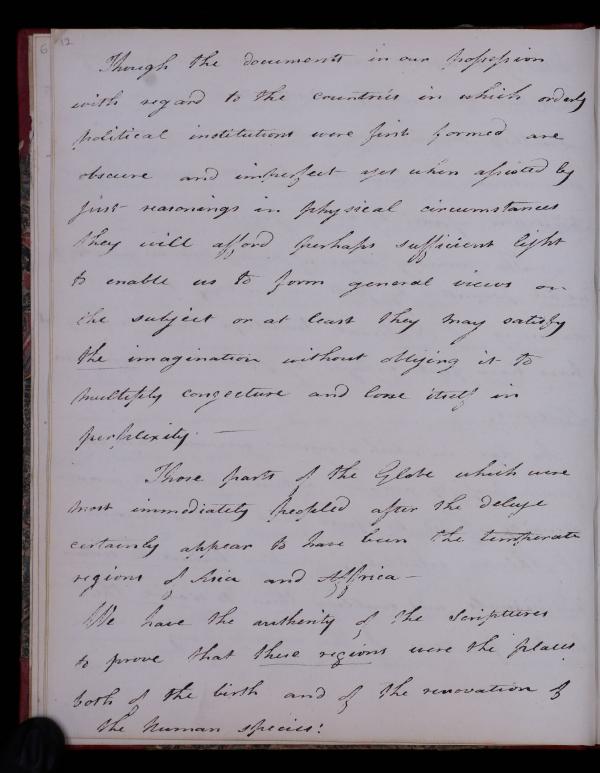 6 12
Though the documents in our possession
with regard to the countries in which orderly
political institutions were first formed are
obscure and imperfect yet when assisted by
just reasonings in physical circumstances
they will afford perhaps sufficient light
to enable us to form general views on
the subject or at least they may satisfy
the imagination without obliging it to
multiply congecture and lose itself in
perplexity. —
Those parts of the Globe which were
most immediately peopled after the deluge
certainly appear to have been the temperate
regions of Asia and Affrica —
We have the authority of the Scriptures
to prove that these regions were the places
both of the birth and of the renovation of
the human species: